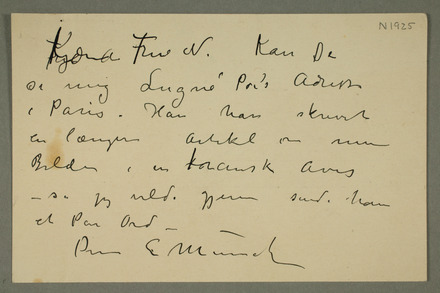 N 1925
Kjære Frue N. Kan De
si mig Lugné Poë's Adresse
i Paris. Han har skrevet
en længere artikel om mine
Billeder i en fransk Avis
– så jeg vilde gjerne sende ham
et Par Ord –
Deres E Munch